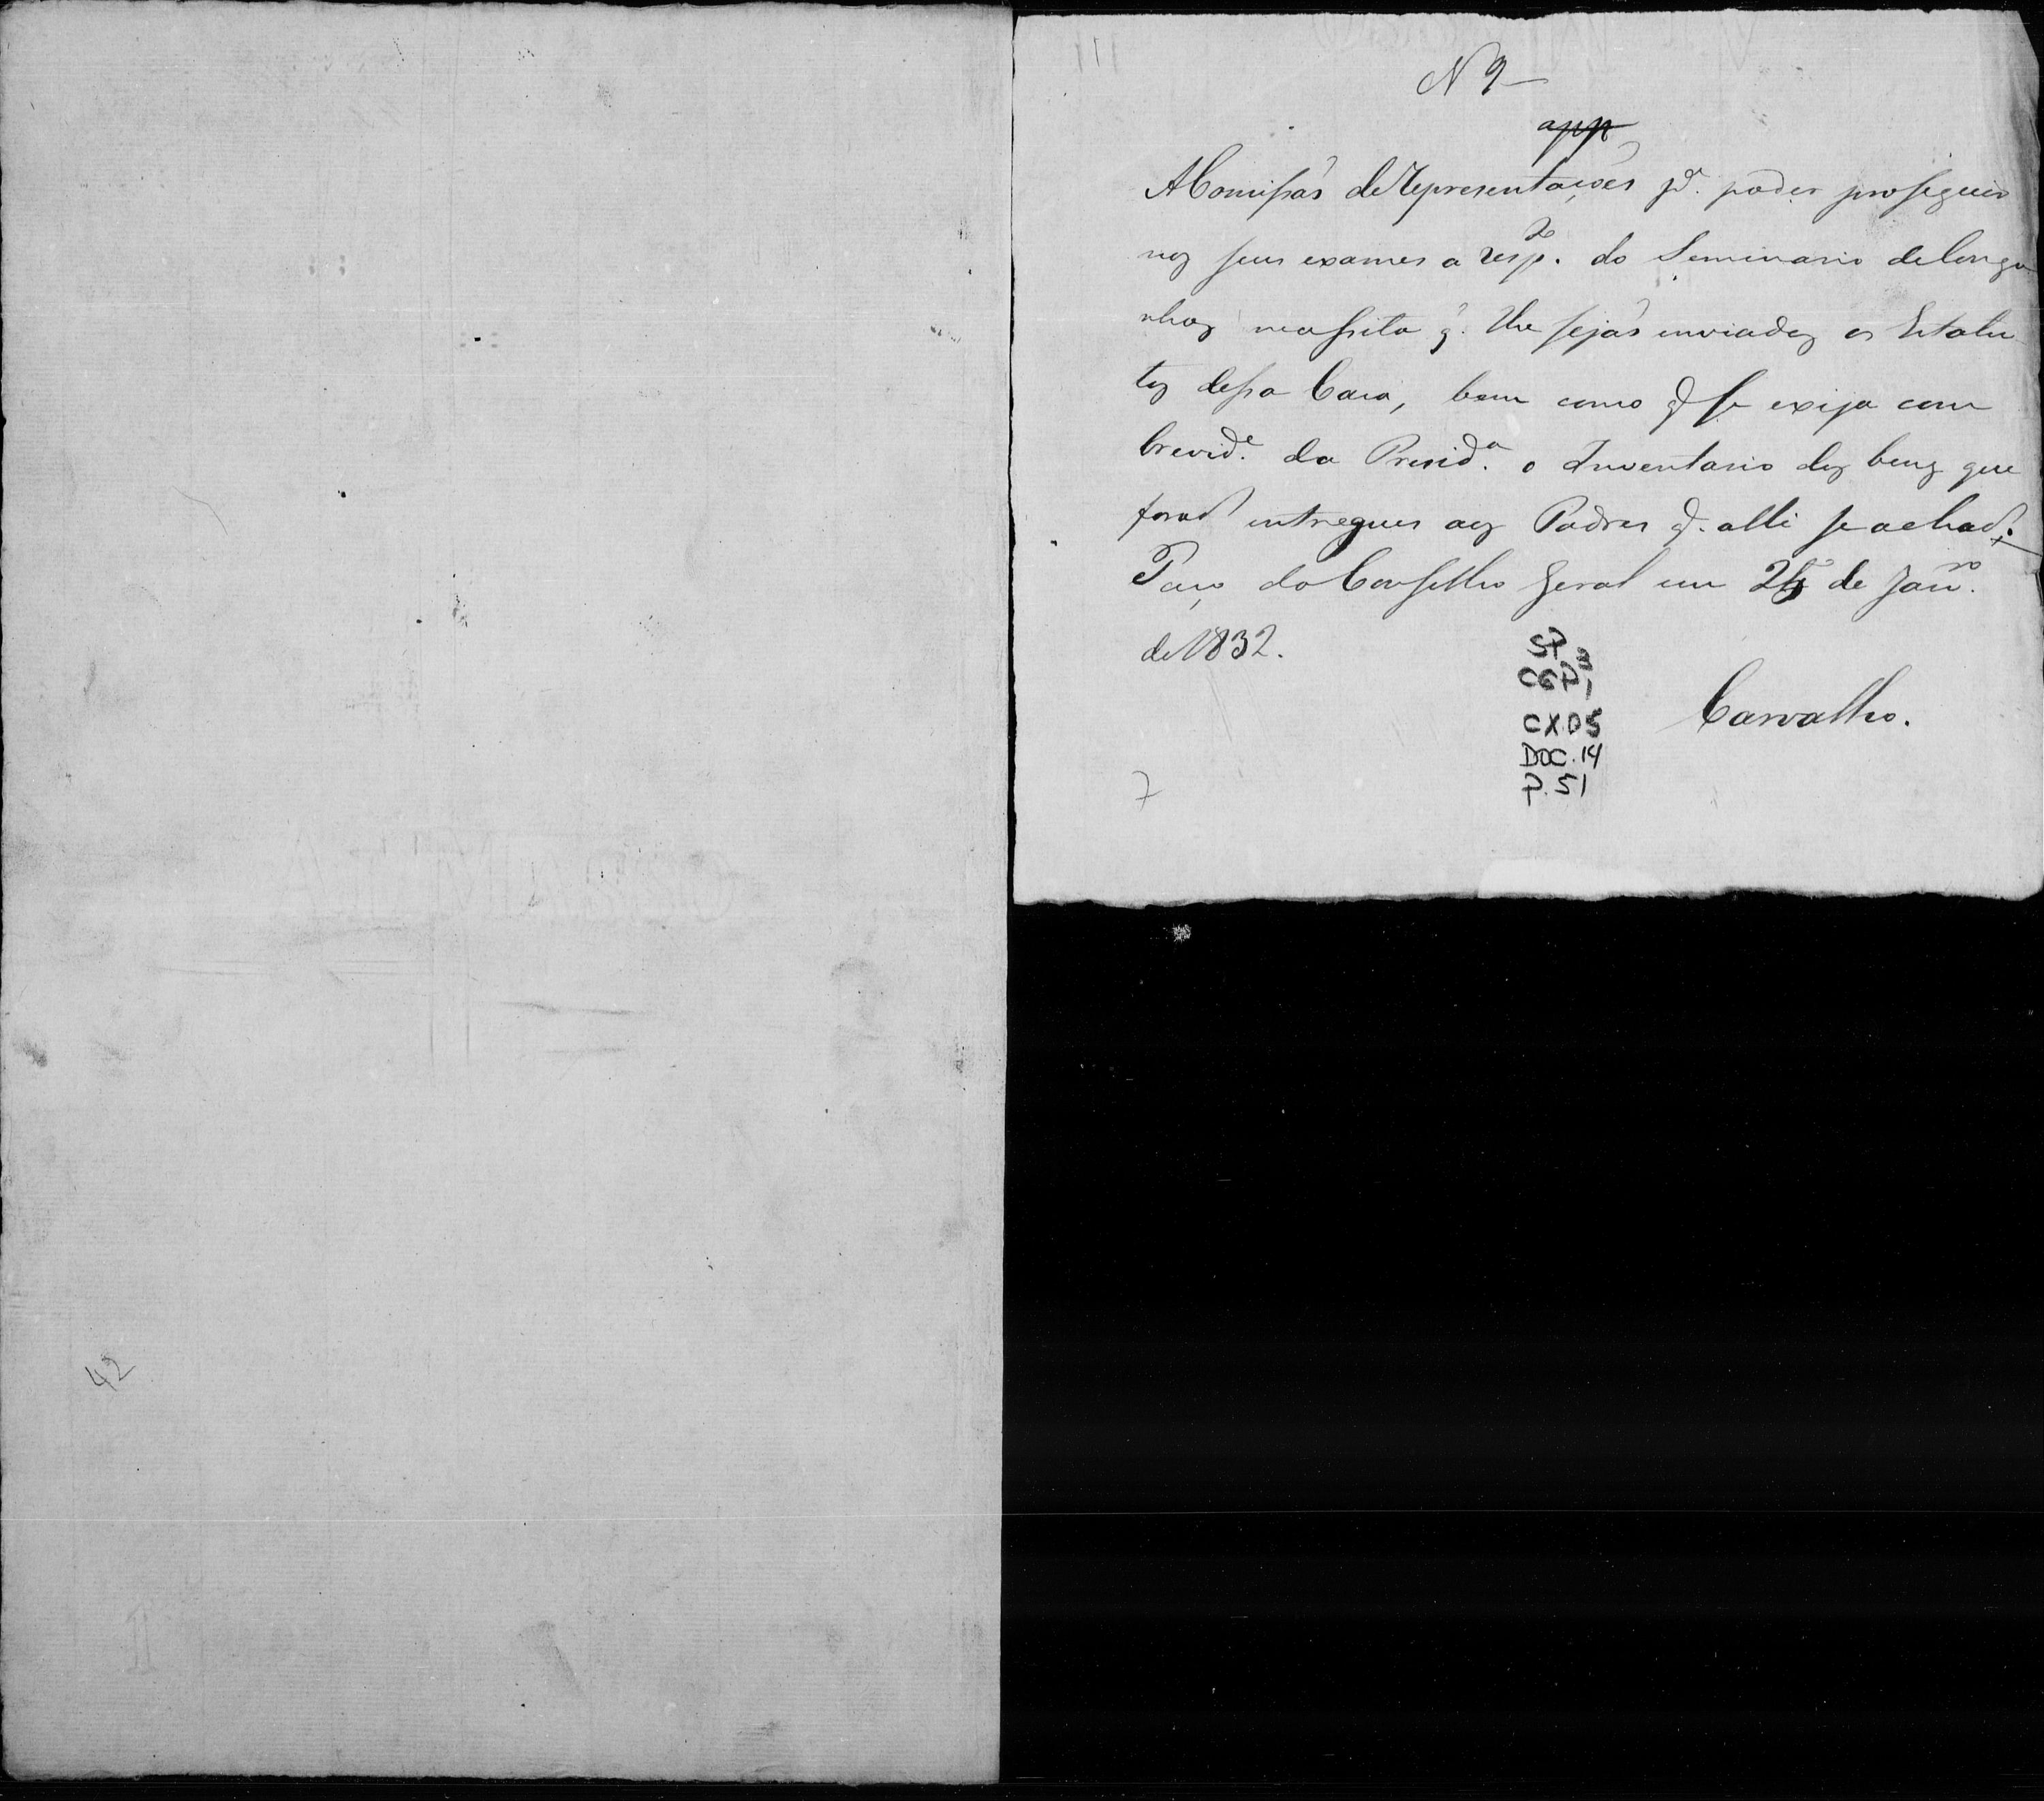 N 9
app
A Comissaõ de Representações pª. poder proseguir
nos seus exames a respº. do Seminario de Congo
nhas necessita q̃. lhe sejaõ inviados os Estatu
tos dessa Casa, bem como q̃ se exija com
brevidᵉ. da Presidª. o Inventario dos bens que
foraõ intregues aos Padres q̃. alli se achaõ.
Paço do Conselho Geral em de Janrº.
de 1832.
Carvalho.
SP
CGP1
CX.05
DOC.14
P.51
7
42